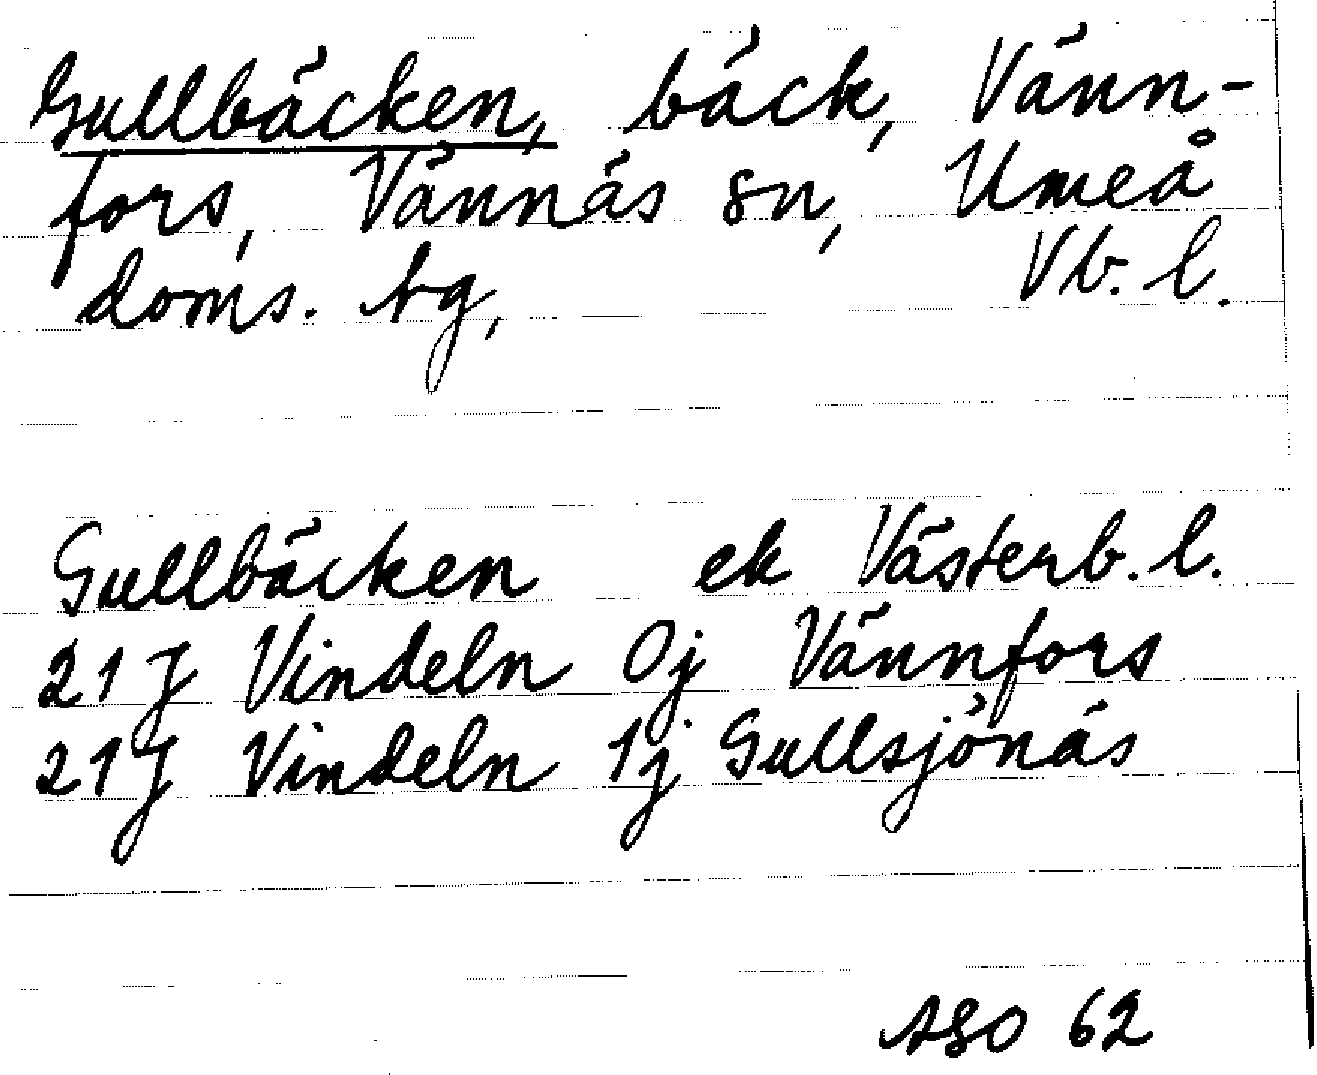 Gullbäcken, bäck, Vänn-
fors, Vännäs sn, Umeå
doms. bg, Vb. l.
Gullbäcken ek Västerb. l.
21 J Vindeln 0j Vännfors
21 J Vindeln 1j Gullsjönäs
ASO 62